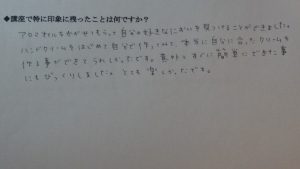 ◆講座で特に印象に残ったことは何ですか？
アロマオイルをかがせてもらって自分の好きなにおいを見つけることができました。
ハンドクリームをはじめて自分で作ってみて、本当に自分に合ったクリームを
作る事ができてうれしかったです。意外とすぐに簡単にできた事
にもびっくりしました。とても楽しかったです。